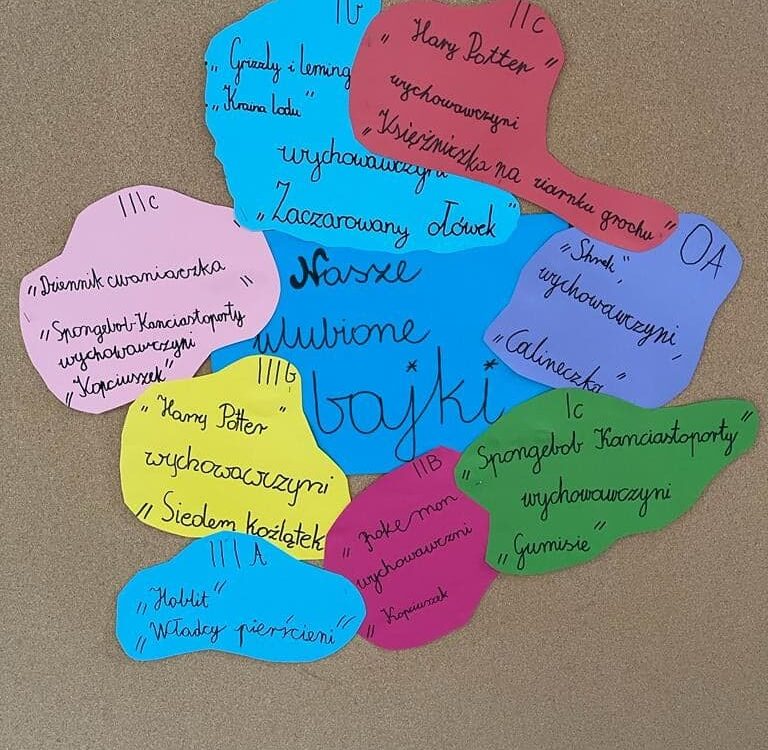 Ib
„Grizzly i leming
„Kraina lodu"
wychowawczyni
„Zaczarowany ołówek"
IIc
„Hary Potter"
wychowawczyni
„Księżniczka na ziarnku grochu"
IIIc
„Dziennik cwaniaczka"
„Spongebob Kanciastoporty
wychowawczyni
„Kopciuszek"
Nasze
ulubione
bajki
OA
„Shrek"
wychowawczyni
„Calineczka"
IIIb
„Harry Potter"
wychowawczyni
„Siedem koźlątek
Ic
„Spongebob Kanciastoporty"
wychowawczyni
„Gumisie"
IIB
„Pokemon
wychowawczni
„Kopciuszek
III A
„Hobbit"
„Władcy pierścieni"